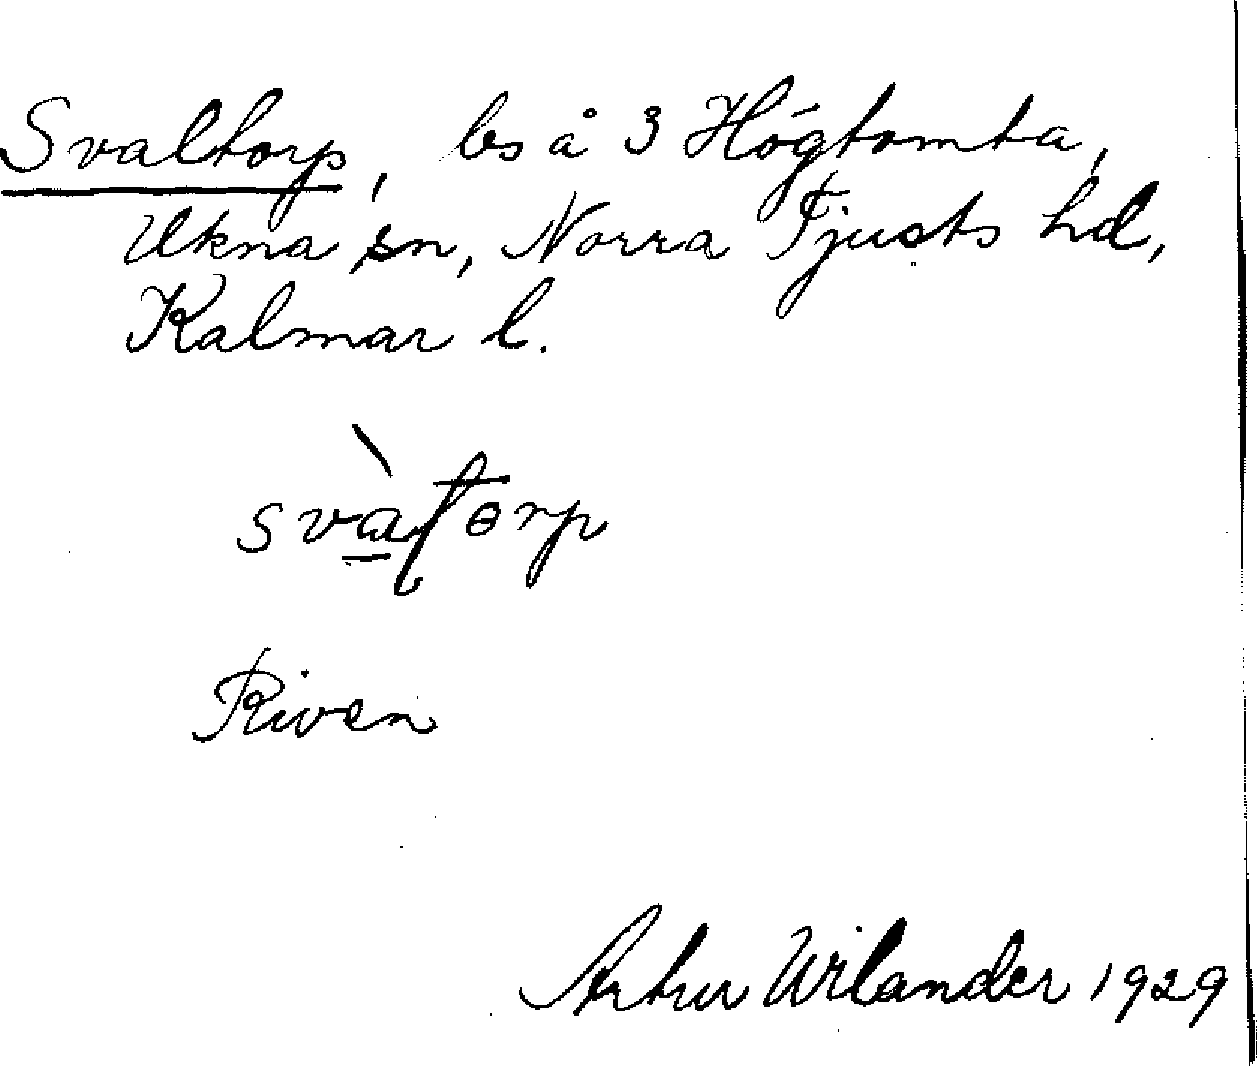 Svaltorp, ls å 3 Högtomta,
Ukna sn, Norra Tjusts hd,
Kalmar l.
svàltɵrp
Riven
Artur Wilander 1929